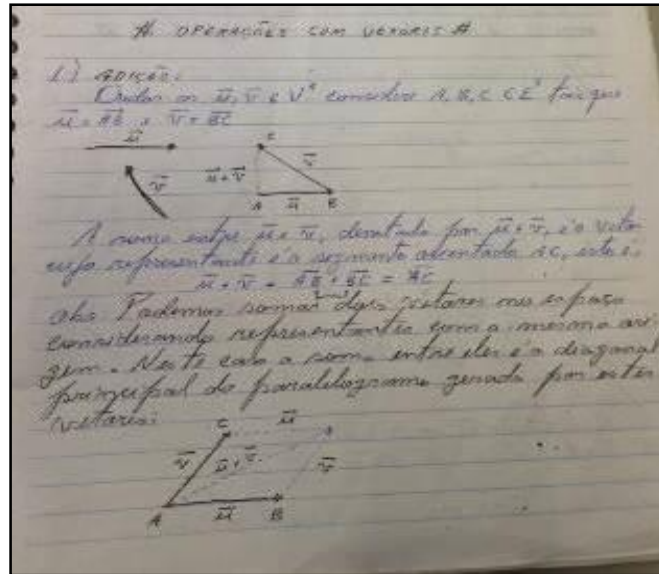 # OPERAÇÕES COM VETORES #
1.) ADIÇÃO:
Dados os u⃗, v⃗ ∈ V³ considere A, B, C ∈ E³ tais que
u⃗ = AB⃗ e v⃗ = BC⃗
u⃗
C
v⃗
u⃗ + v⃗
v⃗
A u⃗ B
A soma entre u⃗ e v⃗, denotado por u⃗ + v⃗, é o vetor
cujo representante é o segmento orientado AC, isto é,
u⃗ + v⃗ = AB⃗ + BC⃗ = AC
obs Podemos somar dois vetores no espaço
considerando representantes com a mesma ori
gem. Neste caso a soma entre eles é a diagonal
principal do paralelogramo gerado por estes
vetores:
C u⃗
v⃗ u⃗ + v⃗ v⃗
A u⃗ B